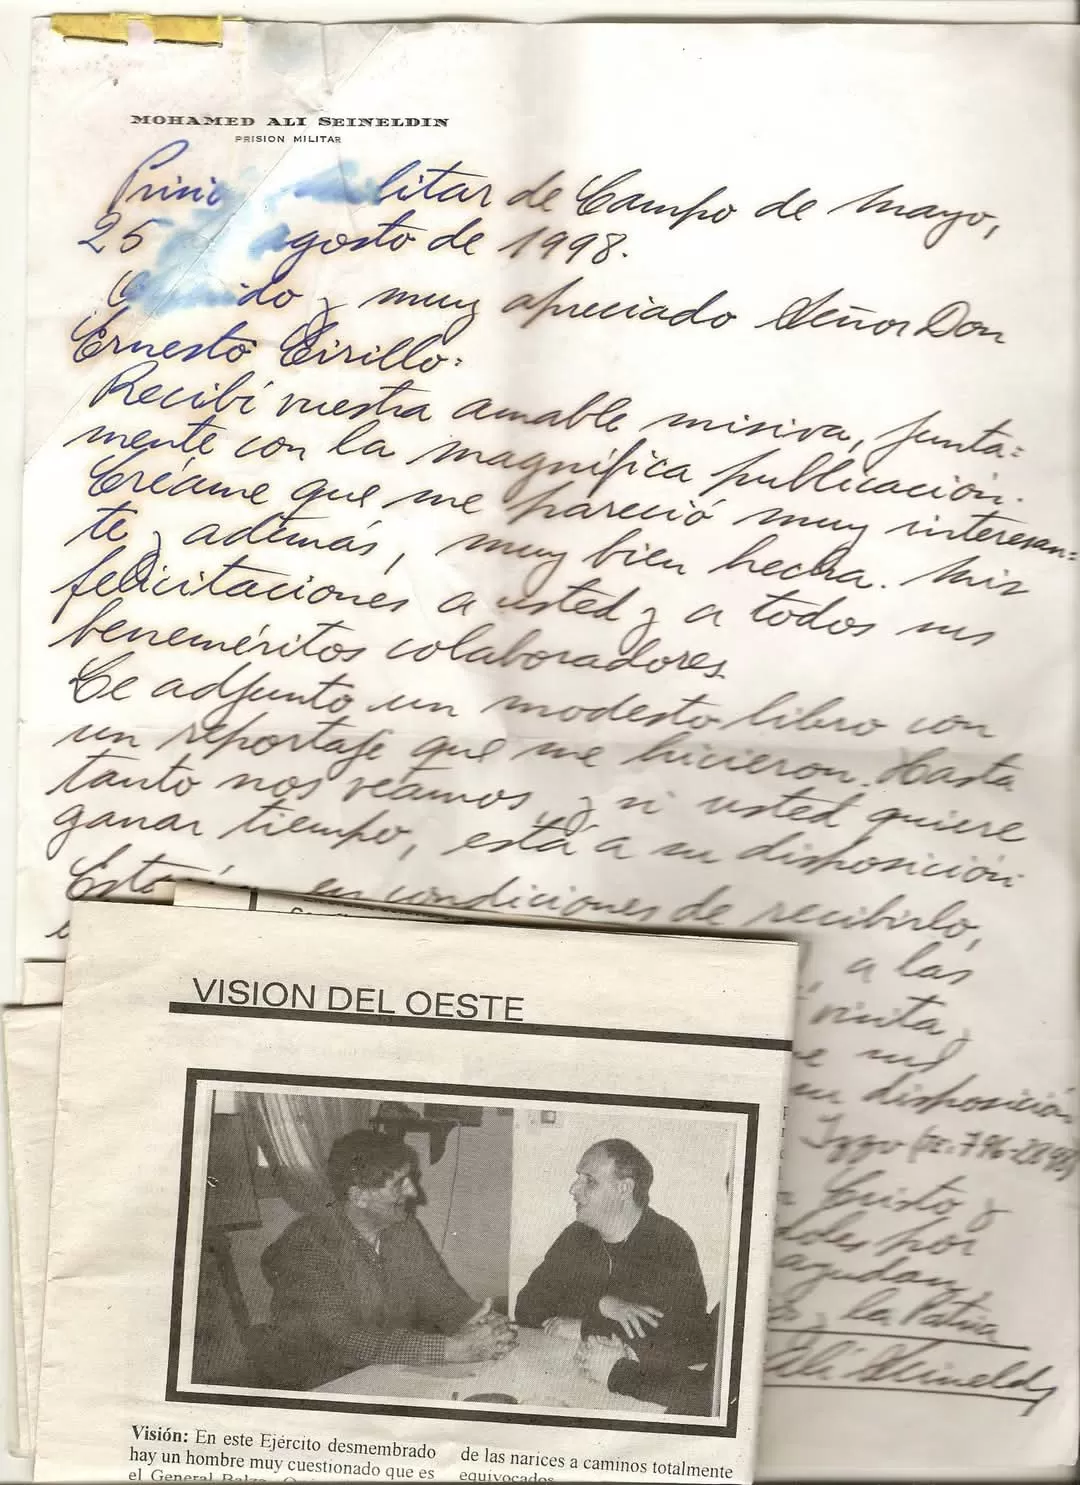 MOHAMED ALI SEINELDIN
PRISION MILITAR
litar de Campo de Mayo,
25 agosto de 1998.
do y muy apreciado Señor Don
Ernesto Cirillo:
Recibí vuestra amable misiva, junta=
mente con la magnífica publicación.
Créame que me pareció muy interesan=
te y además, muy bien hecha. Mis
felicitaciones a usted y a todos sus
beneméritos colaboradores.
Le adjunto un modesto libro con
un reportaje que me hicieron. Hasta
tanto nos veamos y si usted quiere
ganar tiempo, está a su disposición
en condiciones de recibirlo,
a las
visita
su disposición
Izzo
Cristo y
por
ayudan
la Patria
Ali Seineldin
VISION DEL OESTE
Visión: En este Ejército desmembrado
hay un hombre muy cuestionado que es
el General Balza.
de las narices a caminos totalmente
equivocados